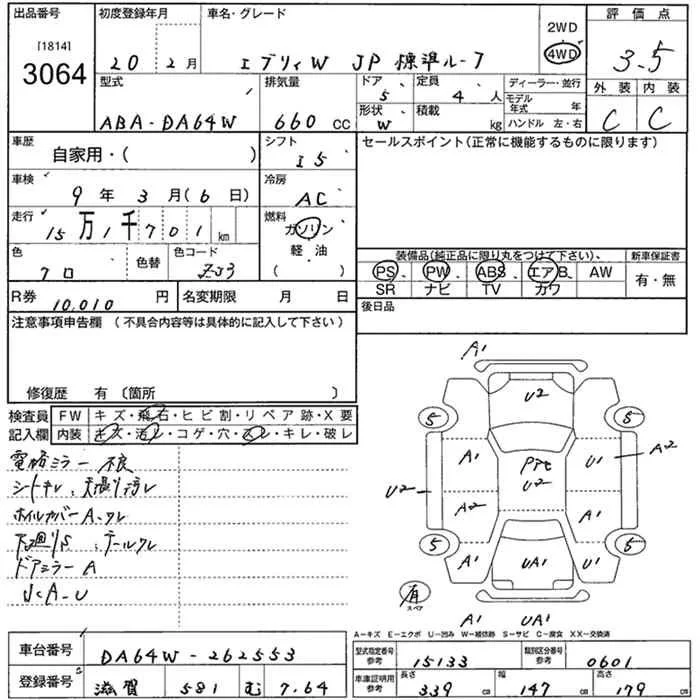 出品番号
[1814]
3064
初度登録年月
20年 2月
車名・グレード
エブリィW JP 標準ルーフ
2WD
4WD
評価点
3.5
型式
ABA-DA64W
排気量
660 CC
ドア
5
定員
4人
形状
W
積載
kg
ディーラー・並行
モデル年式 年
ハンドル 左・右
外装 内装
C C
車歴
自家用・( )
シフト
I5
セールスポイント(正常に機能するものに限ります)
車検
9年 3月(6日)
冷房
AC
走行
15万1千701km
燃料
ガソリン
軽・油
( )
色
クロ
色替
色コード
ZJ3
装備品(純正品に限り丸をつけて下さい)、
新車保証書
PS PW ABS エアB AW
SR ナビ TV カワ
有・無
R券
10,010円
名変期限 月 日
後日品
注意事項申告欄(不具合内容等は具体的に記入して下さい)
修復歴 有〔箇所 〕
検査員
記入欄
FW キズ・飛石・ヒビ割・リペア跡・X要
内装 キズ・汚レ・コゲ・穴・スレ・キレ・破レ
電格ミラー不良
シートキレ、天張リ汚レ
ホイルカバーA、ワレ
下廻リS、テールワレ
ドアミラーA
A1
U2
5 5
A1
Pit
U2
U1 A2
U2
A2
A1
5 5
A1
UA1
U1
有
スペア
A1 UA1
A-キズ E-エクボ U-凹み W-補修跡 S-サビ C-腐食 XX-交換済
車台番号
DA64W-262553
登録番号
滋賀 581 む 7.64
型式指定番号
参考
15133
類別区分番号
参考
0601
車庫証明用
参考
長さ
339cm
幅
147cm
高さ
179cm